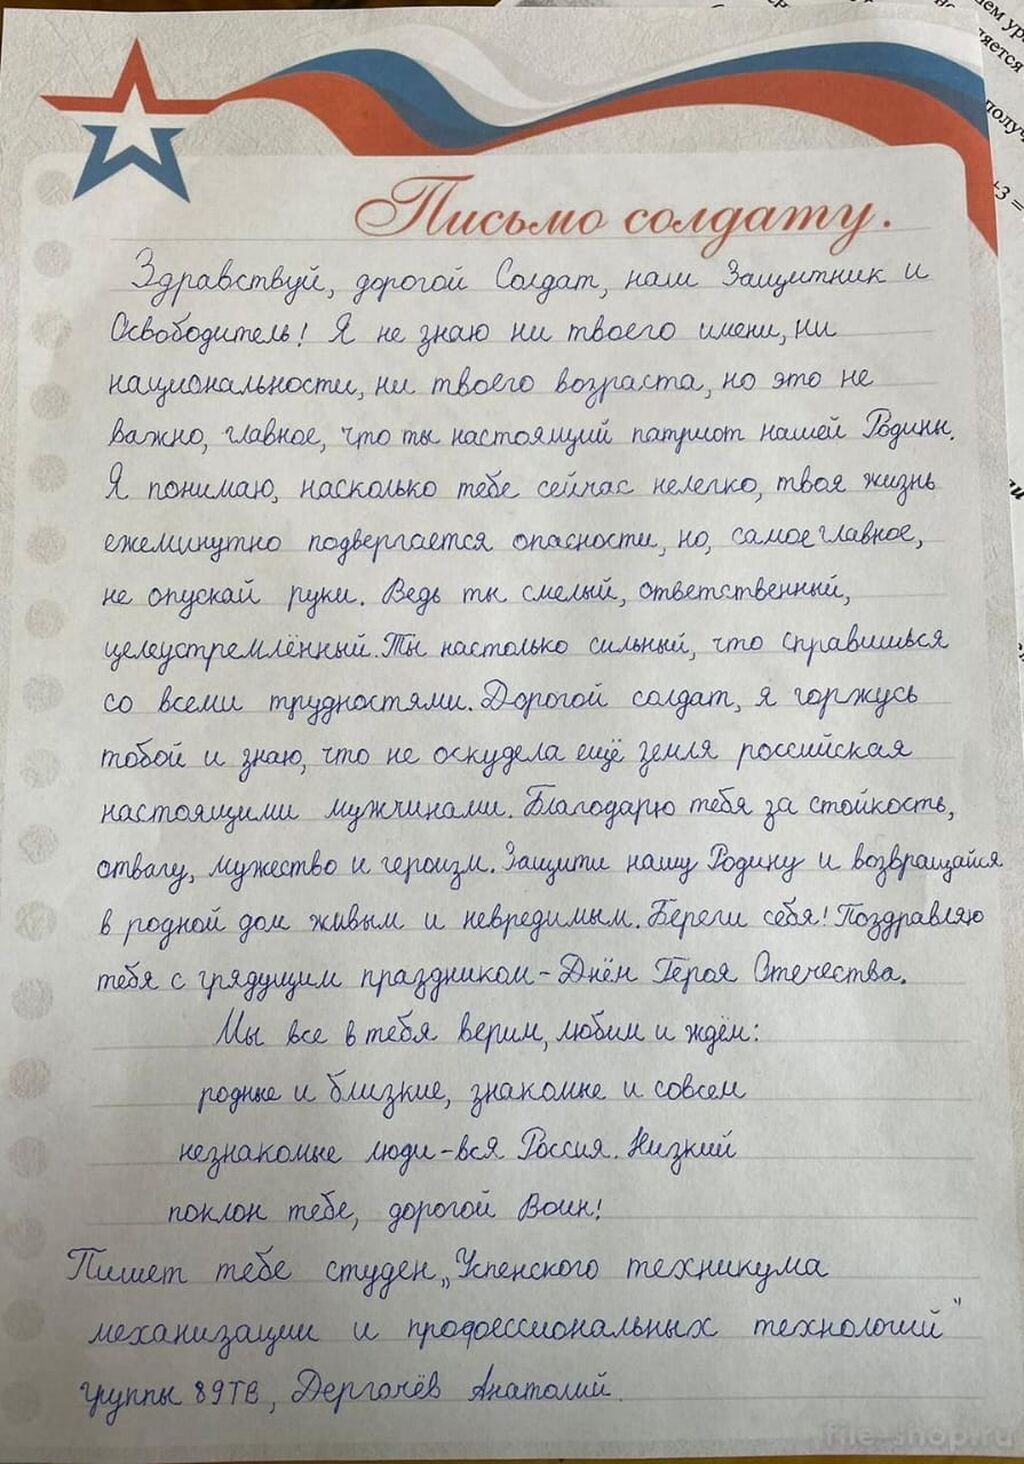 Письмо солдату.
Здравствуй, дорогой Солдат, наш Защитник и
Освободитель! Я не знаю ни твоего имени, ни
национальности, ни твоего возраста, но это не
важно, главное, что ты настоящий патриот нашей Родины.
Я понимаю, насколько тебе сейчас нелегко, твоя жизнь
ежеминутно подвергается опасности, но, самое главное,
не опускай руки. Ведь ты смелый, ответственный,
целеустремлённый. Ты настолько сильный, что справишься
со всеми трудностями. Дорогой солдат, я горжусь
тобой и знаю, что не оскудела ещё земля российская
настоящими мужчинами. Благодарю тебя за стойкость,
отвагу, мужество и героизм. Защити нашу Родину и возвращайся
в родной дом живым и невредимым. Береги себя! Поздравляю
тебя с грядущим праздником - Днём Героя Отечества.
Мы все в тебя верим, любим и ждём:
родные и близкие, знакомые и совсем
незнакомые люди - вся Россия. Низкий
поклон тебе, дорогой Воин!
Пишет тебе студен „Успенского техникума
механизации и профессиональных технологий"
группы 89ТВ, Дергачёв Анатолий.
file-shop.ru